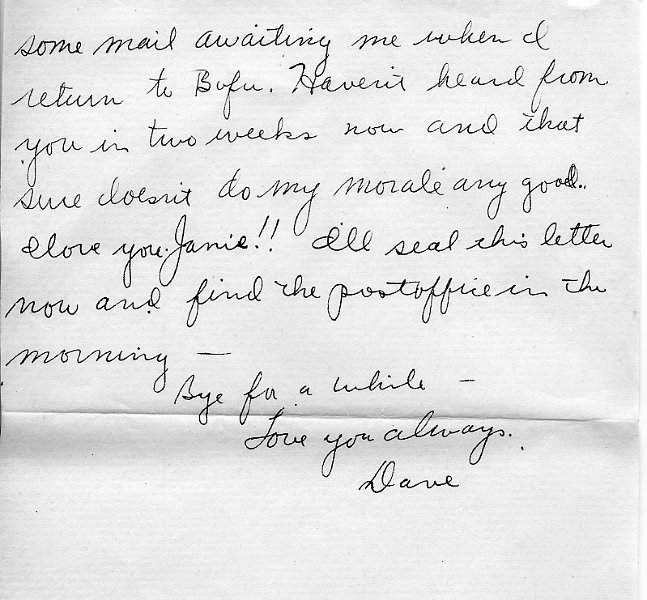 some mail awaiting me when I
return to Bofu. Haven't heard from
you in two weeks now and that
sure doesn't do my morale any good..
I love you Janie!! I'll seal this letter
now and find the postoffice in the
morning —
Bye for a while —
Love you always.
Dave